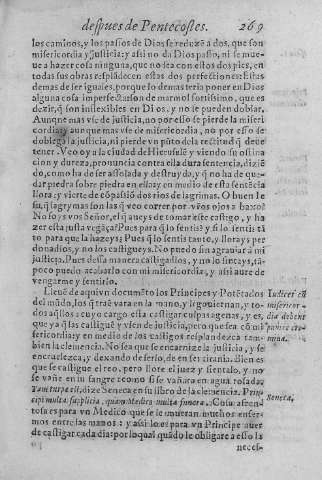 despues de Pentecostes. 269
los caminos, y los passos de Dios se reduzē a dos, que son
misericordia y justicia: y assi no da Dios passo, ni se mue
ue a hazer cosa ninguna, que no sea con estos dos pies, en
todas sus obras resplādecen estas dos perfectiones: Estas
demas de ser iguales, porque lo demas seria poner en Dios
alguna cosa imperfecta, son de marmol fortissimo, que es
dezir, q̄ son inflexibles en Dios, y no se pueden doblar.
Aunque mas vse de justicia, no por esso se pierde la miseri
cordia, y aunque mas vse de misericordia, no por esso se
doblega la justicia, ni pierde vn pūto de la rectitud q̄ deue
tener. Veo oy a la ciudad de Hierusalē y viendo su ostina
cion y dureza, pronuncia contra ella dura sentencia, diziē
do, como ha de ser assolada y destruyda, y q̄ no ha de que
dar piedra sobre piedra en ella: y en medio de esta sentēcia
llora, y vierte de cōpassiō dos rios de lagrimas. O buen Ie
su, q̄ lagrymas son las q̄ veo correr por vr̄os ojos a baxo?
No soys vos Señor, el q̄ aueys de tomar este castigo, y ha
zer esta justa vegāça? Pues para q̄ lo sentis? y si lo sentis tā
to para que la hazeys? Pues q̄ lo sentis tanto, y lloray s per
donadlos, y no los castigueys. No puedo sin agrauiar a mi
justicia. Pues dessa manera castigadlos, y no lo sintays, tā-
poco puedo acabarlo con mi misericordia, y assi aure de
vengarme y sentirlo.
Lleuē de aqui vn documēto los Principes y Potētados
del mūdo, los q̄ traē vara en la mano, y lego tienen, y to-
dos aq̄llos a cuyo cargo està castigar culpas agenas, y es,
que ya q̄ las castiguē y vsen de justicia, pero que sea cō mi
sericordia: y en medio de los castigos resplandezca tam-
bien la clemencia. No sea que se encarnize la justicia, y se
encruelezca, y dexando de serlo, de en ser tirania. Bien es
que se castigue el reo, pero llore el juez y sientalo, y no
se vañe en su sangre como si se vañara en agua rosada.
Tam turpe est, dize Seneca en su libro de la clemencia, Prin-
cipi multa supplicia, quàm Medico multa funera. Cosa afren-
tosa es para vn Medico que se le mueran muchos enfer-
mos entre las manos: y assi lo es para vn Principe auer
de castigar cada dia: por lo qual quādo le obligare a esso la
neces-
Iudices cū
misericor-
dia debent
punire cri-
mina.
Seneca.